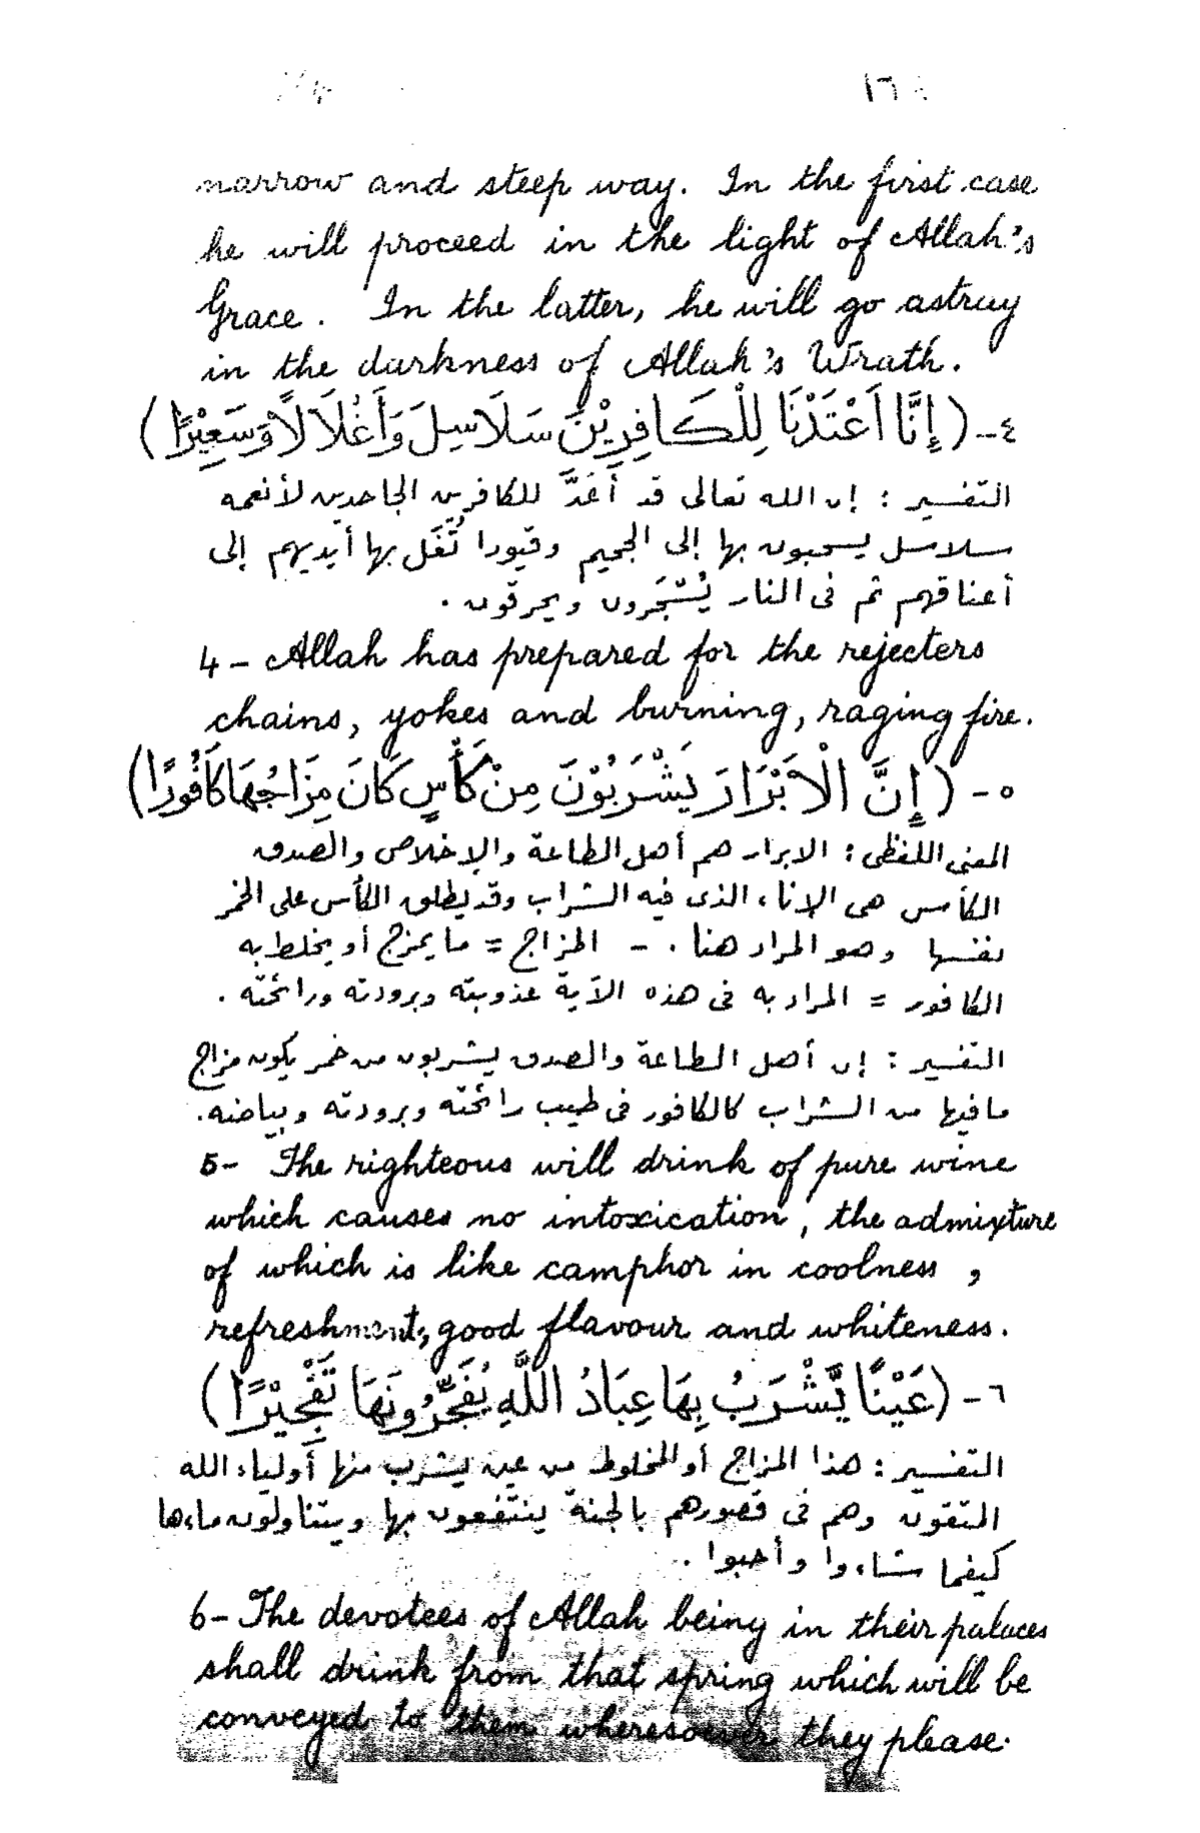 narrow and steep way. In the first case
he will proceed in the light of Allah's
Grace. In the latter, he will go astray
in the darkness of Allah's Wrath.
٤- (إِنَّا اَعْتَدْنَا لِلْكَافِرِيْنَ سَلَاسِلَ وَأَغْلَالًا وَّسَعِيْرًا)
التفسير : إن الله تعالى قد أَعَدَّ للكافرين الجاحدين لأنعمه
سلاسل يسحبون بها إلى الجحيم وقيودا تُغَل بها أيديهم إلى
أعناقهم ثم فى النار يُسْجَرون ويحرقون .
4 - Allah has prepared for the rejecters
chains, yokes and burning, raging fire.
٥- (إِنَّ الْاَبْرَارَ يَشْرَبُوْنَ مِنْ كَأْسٍ كَانَ مِزَاجُهَا كَافُورًا)
المعنى اللفظى : الابرار هم أهل الطاعة والإخلاص والصدق
الكأس هى الإناء الذى فيه الشراب وقد يطلق الكأس على الخمر
نفسها وهو المراد هنا . - المزاج = ما يمزج أو يخلط به
الكافور = المراد به فى هذه الآية عذوبته وبرودته ورائحته .
التفسير : إن أهل الطاعة والصدق يشربون من خمر يكون مزاج
ما فيها من الشراب كالكافور فى طيب رائحته وبرودته وبياضه.
5- The righteous will drink of pure wine
which causes no intoxication, the admixture
of which is like camphor in coolness ,
refreshment, good flavour and whiteness.
٦- (عَيْنًا يَّشْرَبُ بِهَا عِبَادُ اللَّهِ يُفَجِّرُونَهَا تَفْجِيْرًا)
التفسير : هذا المزاج أو المخلوط من عين يشرب منها أولياء الله
المتقون وهم فى قصورهم بالجنة ينتفعون بها ويتناولون ماءها
كيفما شاءوا وأحبوا .
6- The devotees of Allah being in their palaces
shall drink from that spring which will be
conveyed to them wheresoever they please.